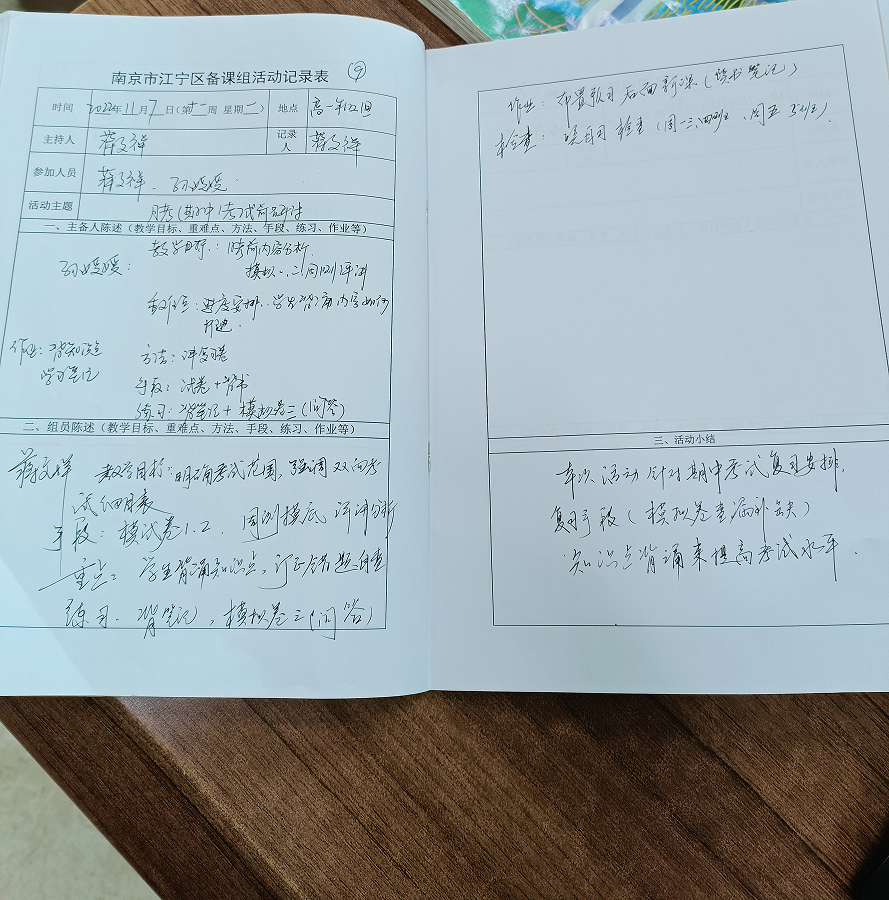 南京市江宁区备课组活动记录表 ⑨
时间 2022年11月7日(第十二周 星期二) 地点 高一年级组
主持人 蒋文祥 记录人 蒋文祥
参加人员 蒋文祥、孙媛媛
活动主题 月考(期中考)试前研讨
一、主备人陈述(教学目标、重难点、方法、手段、练习、作业等)
孙媛媛: 教学目标:1時前内容分析.
模拟一、二周测评讲
重难点:进度安排.学生背诵内容如何
推进.
作业:背知识点 方法:讲复习卷
学习笔记 手段:试卷+背书
练习:背笔记+模拟卷三(问答)
二、组员陈述(教学目标、重难点、方法、手段、练习、作业等)
蒋文祥 教学目标:明确考试范围,强调双向考
试细目表
手段:模试卷1.2.周测摸底 评讲分析
重点:学生背诵知识点,订正错题自查
练习.背笔记,模拟卷三(问答)
作业:布置预习后面新课(读书笔记)
检查:晚自习检查(周一三四班、周五
三、活动小结
本次活动针对期中考试复习安排,
复习手段(模拟卷查漏补缺)
知识点背诵来提高考试水平.